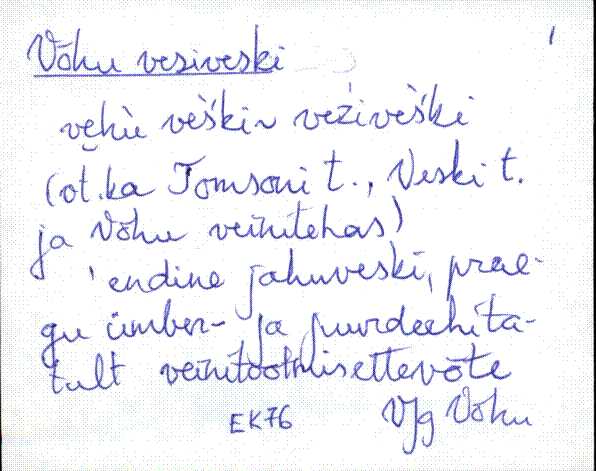 Võhu vesiveski
vę̆hù vèški ~ veźivèški
(ot. ka Tomsoni t., Veski t.
ja Võhu veinitehas)
'endine jahuveski, prae-
gu ümber- ja juurdeehita-
tult veinitootmisettevõte
EK76 Vjg Võhu